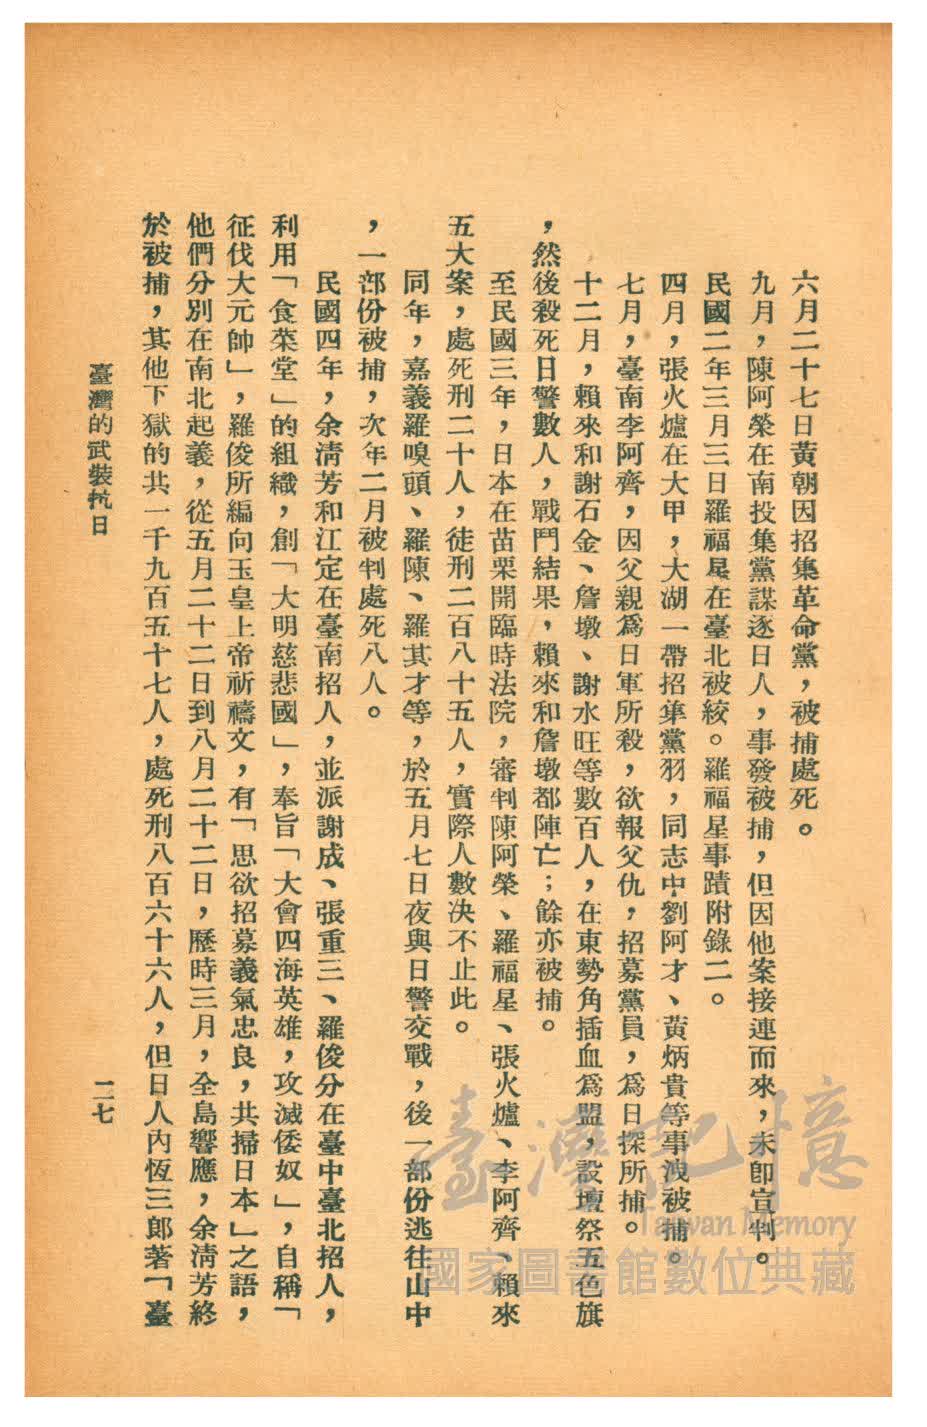 六月二十七日黃朝因招集革命黨，被捕處死。
九月，陳阿榮在南投集黨謀逐日人，事發被捕，但因他案接連而來，未卽宣判。
民國二年三月三日羅福星在臺北被絞。羅福星事蹟附錄二。
四月，張火爐在大甲，大湖一帶招集黨羽，同志中劉阿才、黃炳貴等事洩被捕。
七月，臺南李阿齊，因父親爲日軍所殺，欲報父仇，招募黨員，爲日探所捕。
十二月，賴來和謝石金、詹墩、謝水旺等數百人，在東勢角插血爲盟，設壇祭五色旗
，然後殺死日警數人，戰鬥結果，賴來和詹墩都陣亡；餘亦被捕。
至民國三年，日本在苗栗開臨時法院，審判陳阿榮、羅福星、張火爐、李阿齊、賴來
五大案，處死刑二十人，徒刑二百八十五人，實際人數决不止此。
同年，嘉義羅嗅頭、羅陳、羅其才等，於五月七日夜與日警交戰，後一部份逃往山中
，一部份被捕，次年二月被判處死八人。
民國四年，余淸芳和江定在臺南招人，並派謝成、張重三、羅俊分在臺中臺北招人，
利用「食菜堂」的組織，創「大明慈悲國」，奉旨「大會四海英雄，攻滅倭奴」，自稱「
征伐大元帥」，羅俊所編向玉皇上帝祈禱文，有「思欲招募義氣忠良，共掃日本」之語，
他們分別在南北起義，從五月二十二日到八月二十二日，歷時三月，全島響應，余淸芳終
於被捕，其他下獄的共一千九百五十七人，處死刑八百六十六人，但日人內恆三郞著「臺
臺灣的武裝抗日
二七
臺灣記憶
Taiwan Memory
國家圖書館數位典藏